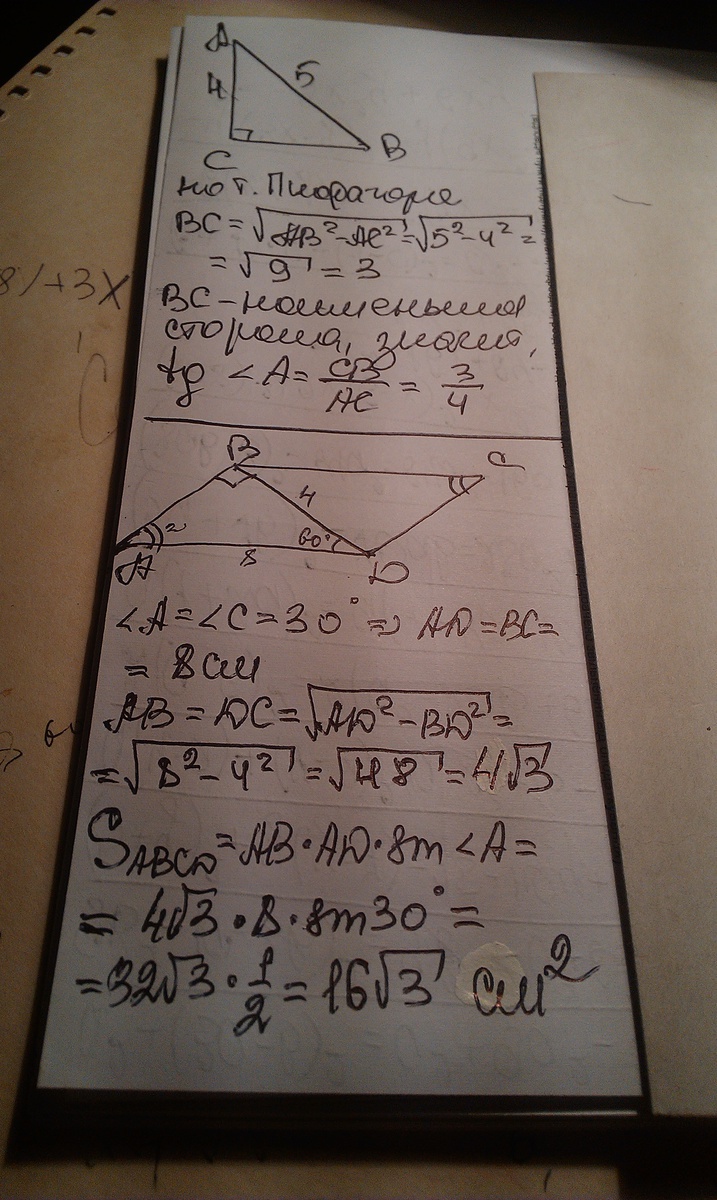 A
5
4
C
B
по т. Пифагора
BC = √AB² - AC² = √5² - 4² =
= √9 = 3
BC - наименьшая
сторона, значит,
tg ∠A = CB/AC = 3/4
8/+3x
B
C
4
2
60°
8
A
D
∠A = ∠C = 30° => AD = BC =
= 8 см
AB = DC = √AD² - BD² =
= √8² - 4² = √48 = 4√3
S ABCD = AB · AD · sin ∠A =
= 4√3 · 8 · sin 30° =
= 32√3 · 1/2 = 16√3 см²